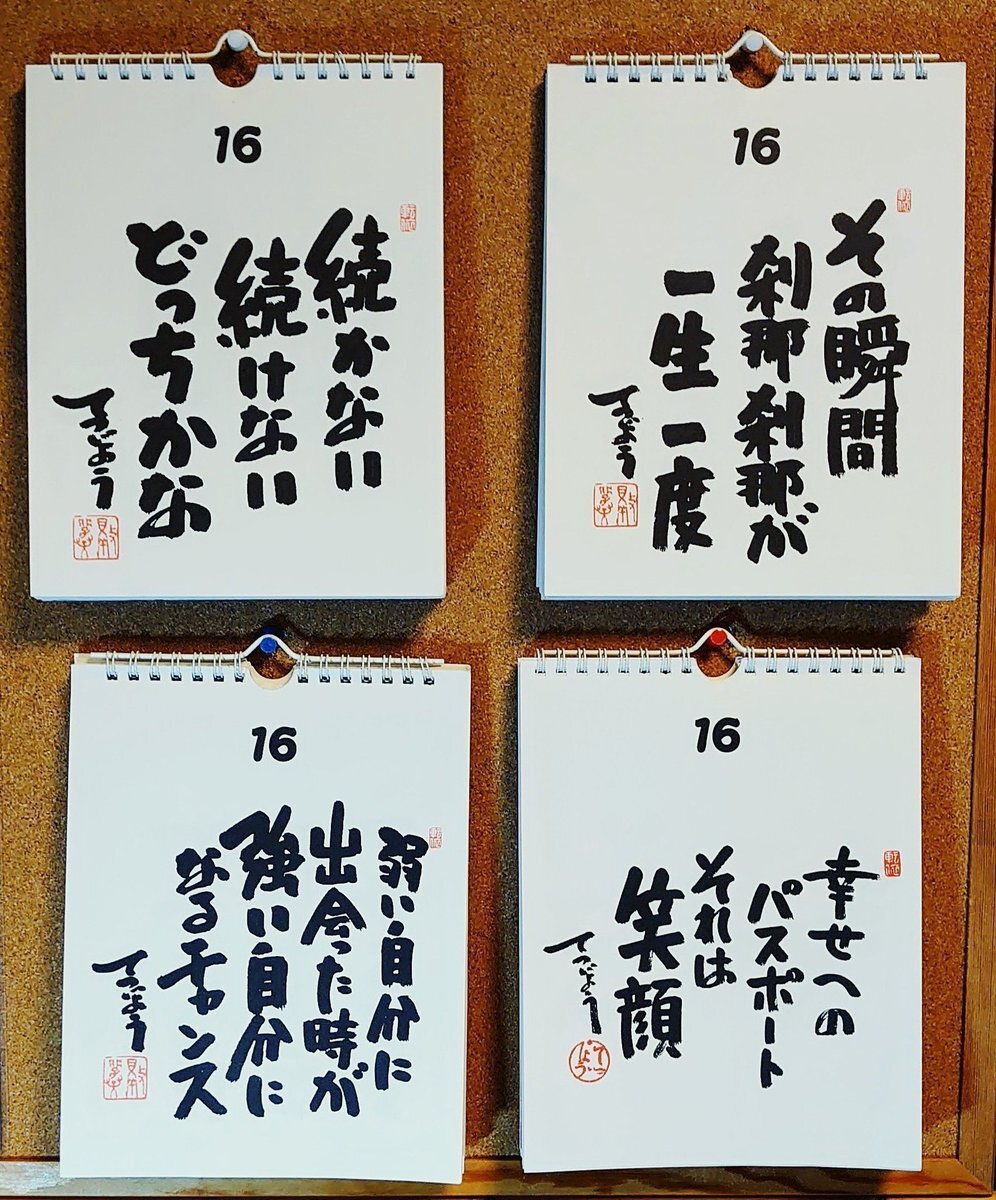 16
続かない
続けない
どっちかな
てつじょう
16
その瞬間
刹那刹那が
一生一度
てつじょう
16
弱い自分に
出会った時が
強い自分に
なるチャンス
てつじょう
16
幸せへの
パスポート
それは
笑顔
てつじょう